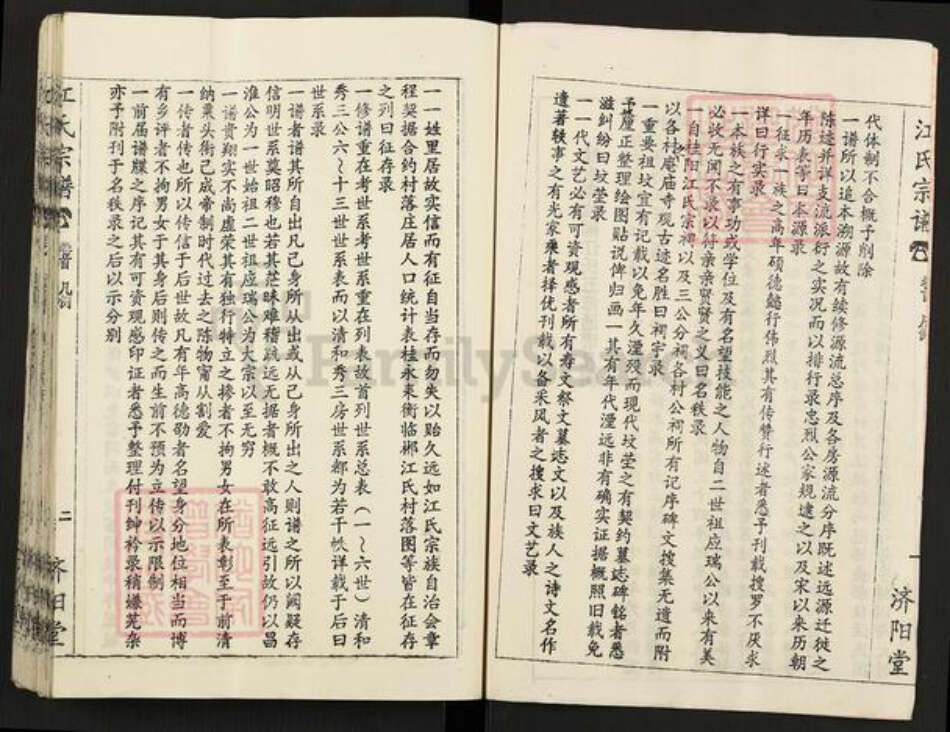 江氏宗谱
济阳堂
代体制不合概予削除
一谱所以追本溯源故有续修源流总序及各房源流分序既述远源迁徙之
陈迹并详支流派衍之实况而以排行录忠烈公家规逮之以及宋以来历朝
年历表等曰本源录
一征求一族之高年硕德懿行伟烈其有传赞行述者悉予刊载搜罗不厌求
详曰行实录
一本族之有事功或学位及有名望技能之人物自二世祖应瑞公以来有美
必收无闻不录以符亲亲贤贤之义曰名秩录
一自桂阳江氏宗祠以及三公分祠各村公祠所有记序碑文搜集无遗而附
以各村庵庙寺观古迹名胜曰祠宇录
一重要祖坟宜有记载以免年久湮没而现代坟茔之有契约墓志碑铭者悉
予厘正整理绘图贴说俾归画一其有年代湮远非有确实证据概照旧载免
滋纠纷曰坟茔录
一一代文艺必有可资观感者所有寿文祭文墓志文以及族人之诗文名作
遗著轶事之有光家乘者择优刊载以备采风者之搜求曰文艺录
一一姓里居故实信而有征自当存而勿失以贻久远如江氏宗族自治会章
程契据合约村落庄居人口统计表桂永耒衡临郴江氏村落图等皆在征存
之列曰征存录
一修谱重在考世系考世系重在列表故首列世系总表（一～六世）清和
秀三公六～十三世世系表而以清和秀三房世系都为若干帙详载于后曰
世系录
一谱者谱其所自出凡己身所从出或从己身所出之人则谱之所以阙疑存
信明世系奠昭穆也若其茫昧难稽疏远无据者概不敢高征远引故仍以昌
淮公为一世始祖二世祖应瑞公为大宗以至无穷
一谱贵翔实不尚虚荣其有独行特立之操者不拘男女在所表彰至于前清
纳粟头衔已成帝制时代过去之陈物宁从割爱
一传者传也所以传信于后世故凡有年高德劭者名望身分地位相当而博
有乡评者不拘男女于其身后则传之而生前不预为立传以示限制
一前届谱牒之序记其有可资观感印证者悉予整理付刊绅衿录稍嫌芜杂
亦予附刊于名秩录之后以示分别
江氏宗谱
二
济阳堂
FamilySearch